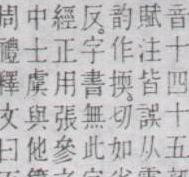 音十四十五
賦注皆誤从
韵作㨎切如
反字書無此
經正用張參
中士虞與他
周禮釋文曰